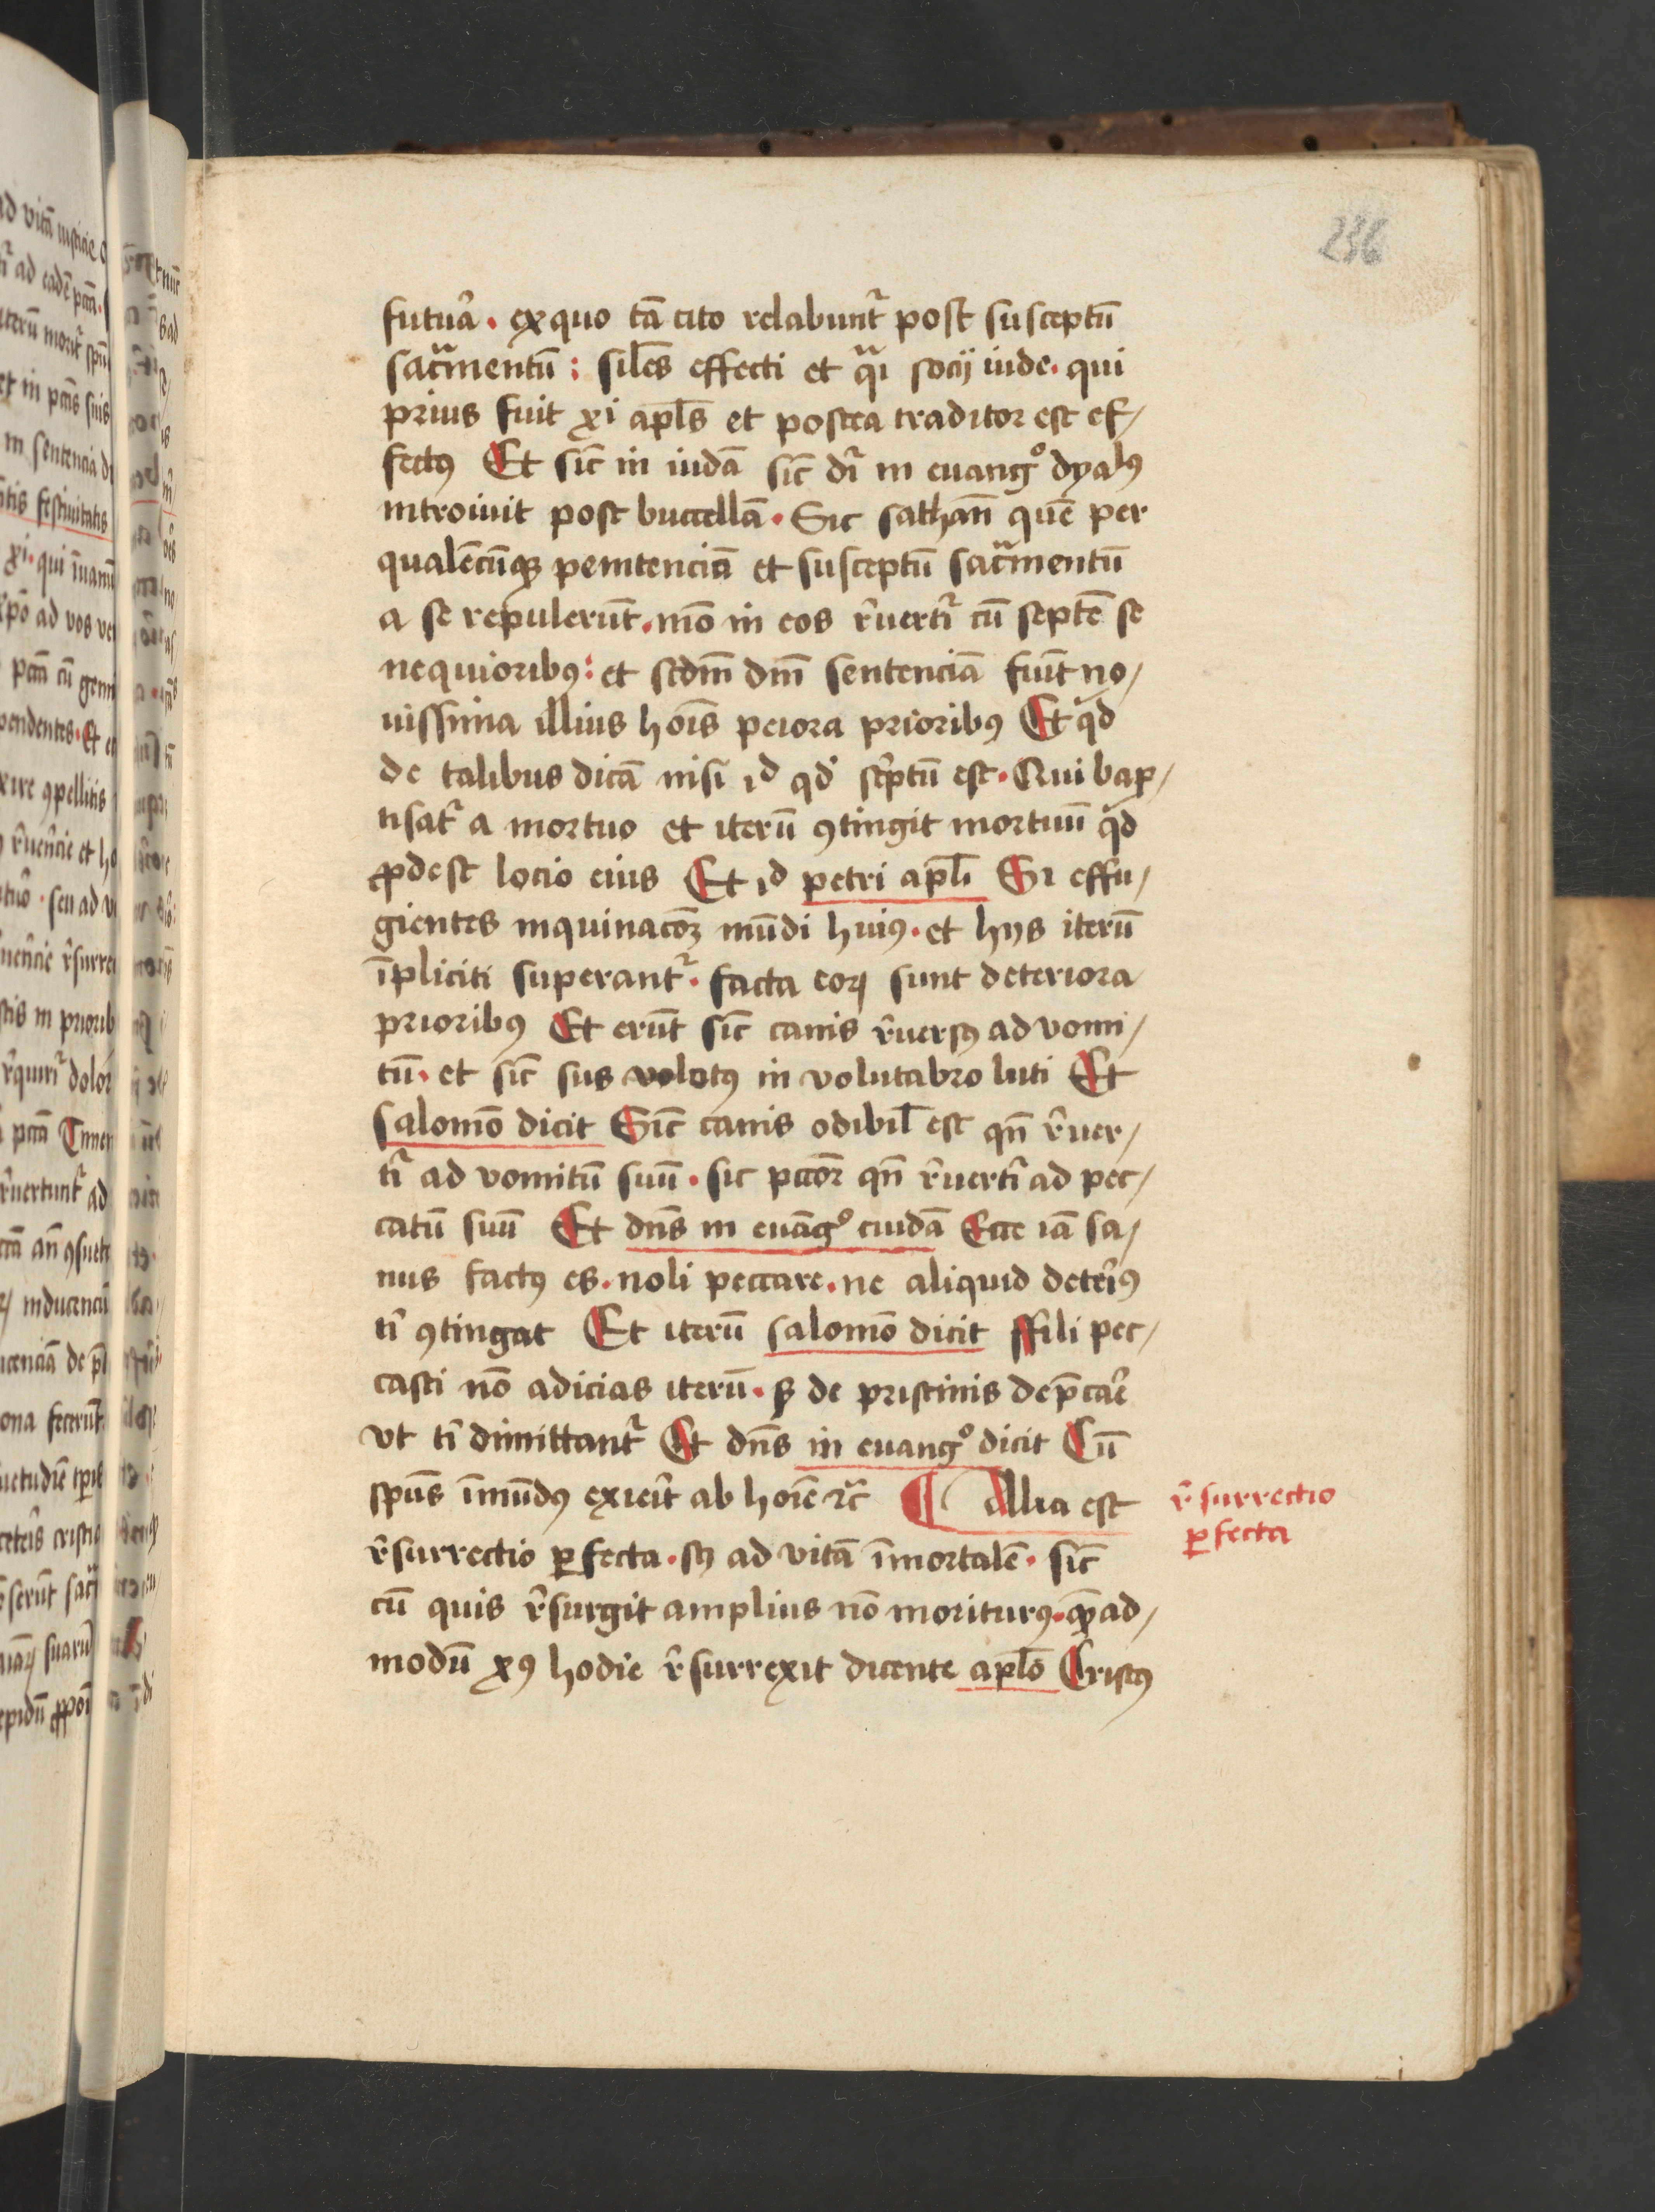 236
futur̄a · exquo tā cito relabunt᷑ post susceptū
sac᷑mentū : siles̄ effecti et q̄si socij iude · qui
prius fuit xi apl̄s et postea traditor est ef/
fectꝰ Et sic̄ in iudā sic̄ dr̄ in euangº dyalꝰ
introiuit post buccellā · Sic sathan̄ quē per
qualēcūqꝫ penitenciā et susceptū sac᷑mentū
a se repulerūt · mō in eos r̄uertr̄ cū septē se
nequioribꝰ : et sc̄dm̄ dn̄i sentenciā fiūt no/
uissima illius hoīs peiora prioribꝰ Et qͥd
de talibus dicā nisi id qd̕ sc̄ptū est · Qui bap/
tisat᷑ a mortuo et iterū ꝯtingit mortuū qͥd
ꝓdest locio eius Et id petri apl̄i Si effu/
gientes inquinacōꝫ mūdi huiꝰ · et hijs iterū
īpliciti superant᷑ · facta eoꝝ sunt deteriora
prioribꝰ Et erūt sic̄ canis r̄uersꝰ ad vomi/
tū · et sic̄ sus volotꝰ in volutabro luti Et
salomō dicit Sic̄ canis odibil̄ est qn̄ r̄uer/
tr̄ ad vomitū suū · sic pccōr qn̄ r̄uertr̄ ad pec/
catū suū Et dn̄s in euāgº cuidā Ecce iā sa/
nus factꝰ es · noli peccare · ne aliquid deter̄iꝰ
ti͛ ꝯtingat Et iterū salomō dicit ffili pec/
casti nō adicias iterū · sꝫ de pristinis dep̄car̄e
vt ti͛ dimittant᷑ Et dn̄s in euangº dicit Cū
spūs īmūdꝰ exier̄it ab hoīe ⁊c̄ ¶ Alia est
r̄surrectio ꝑfecta · scꝫ ad vitā īmortalē · sic̄
cū quis r̄surgit amplius nō moriturꝰ · quēad/
modū xꝰ hodie r̄surrexit dicente apl̄o Cristꝰ
r̄surrectio
ꝑfecta